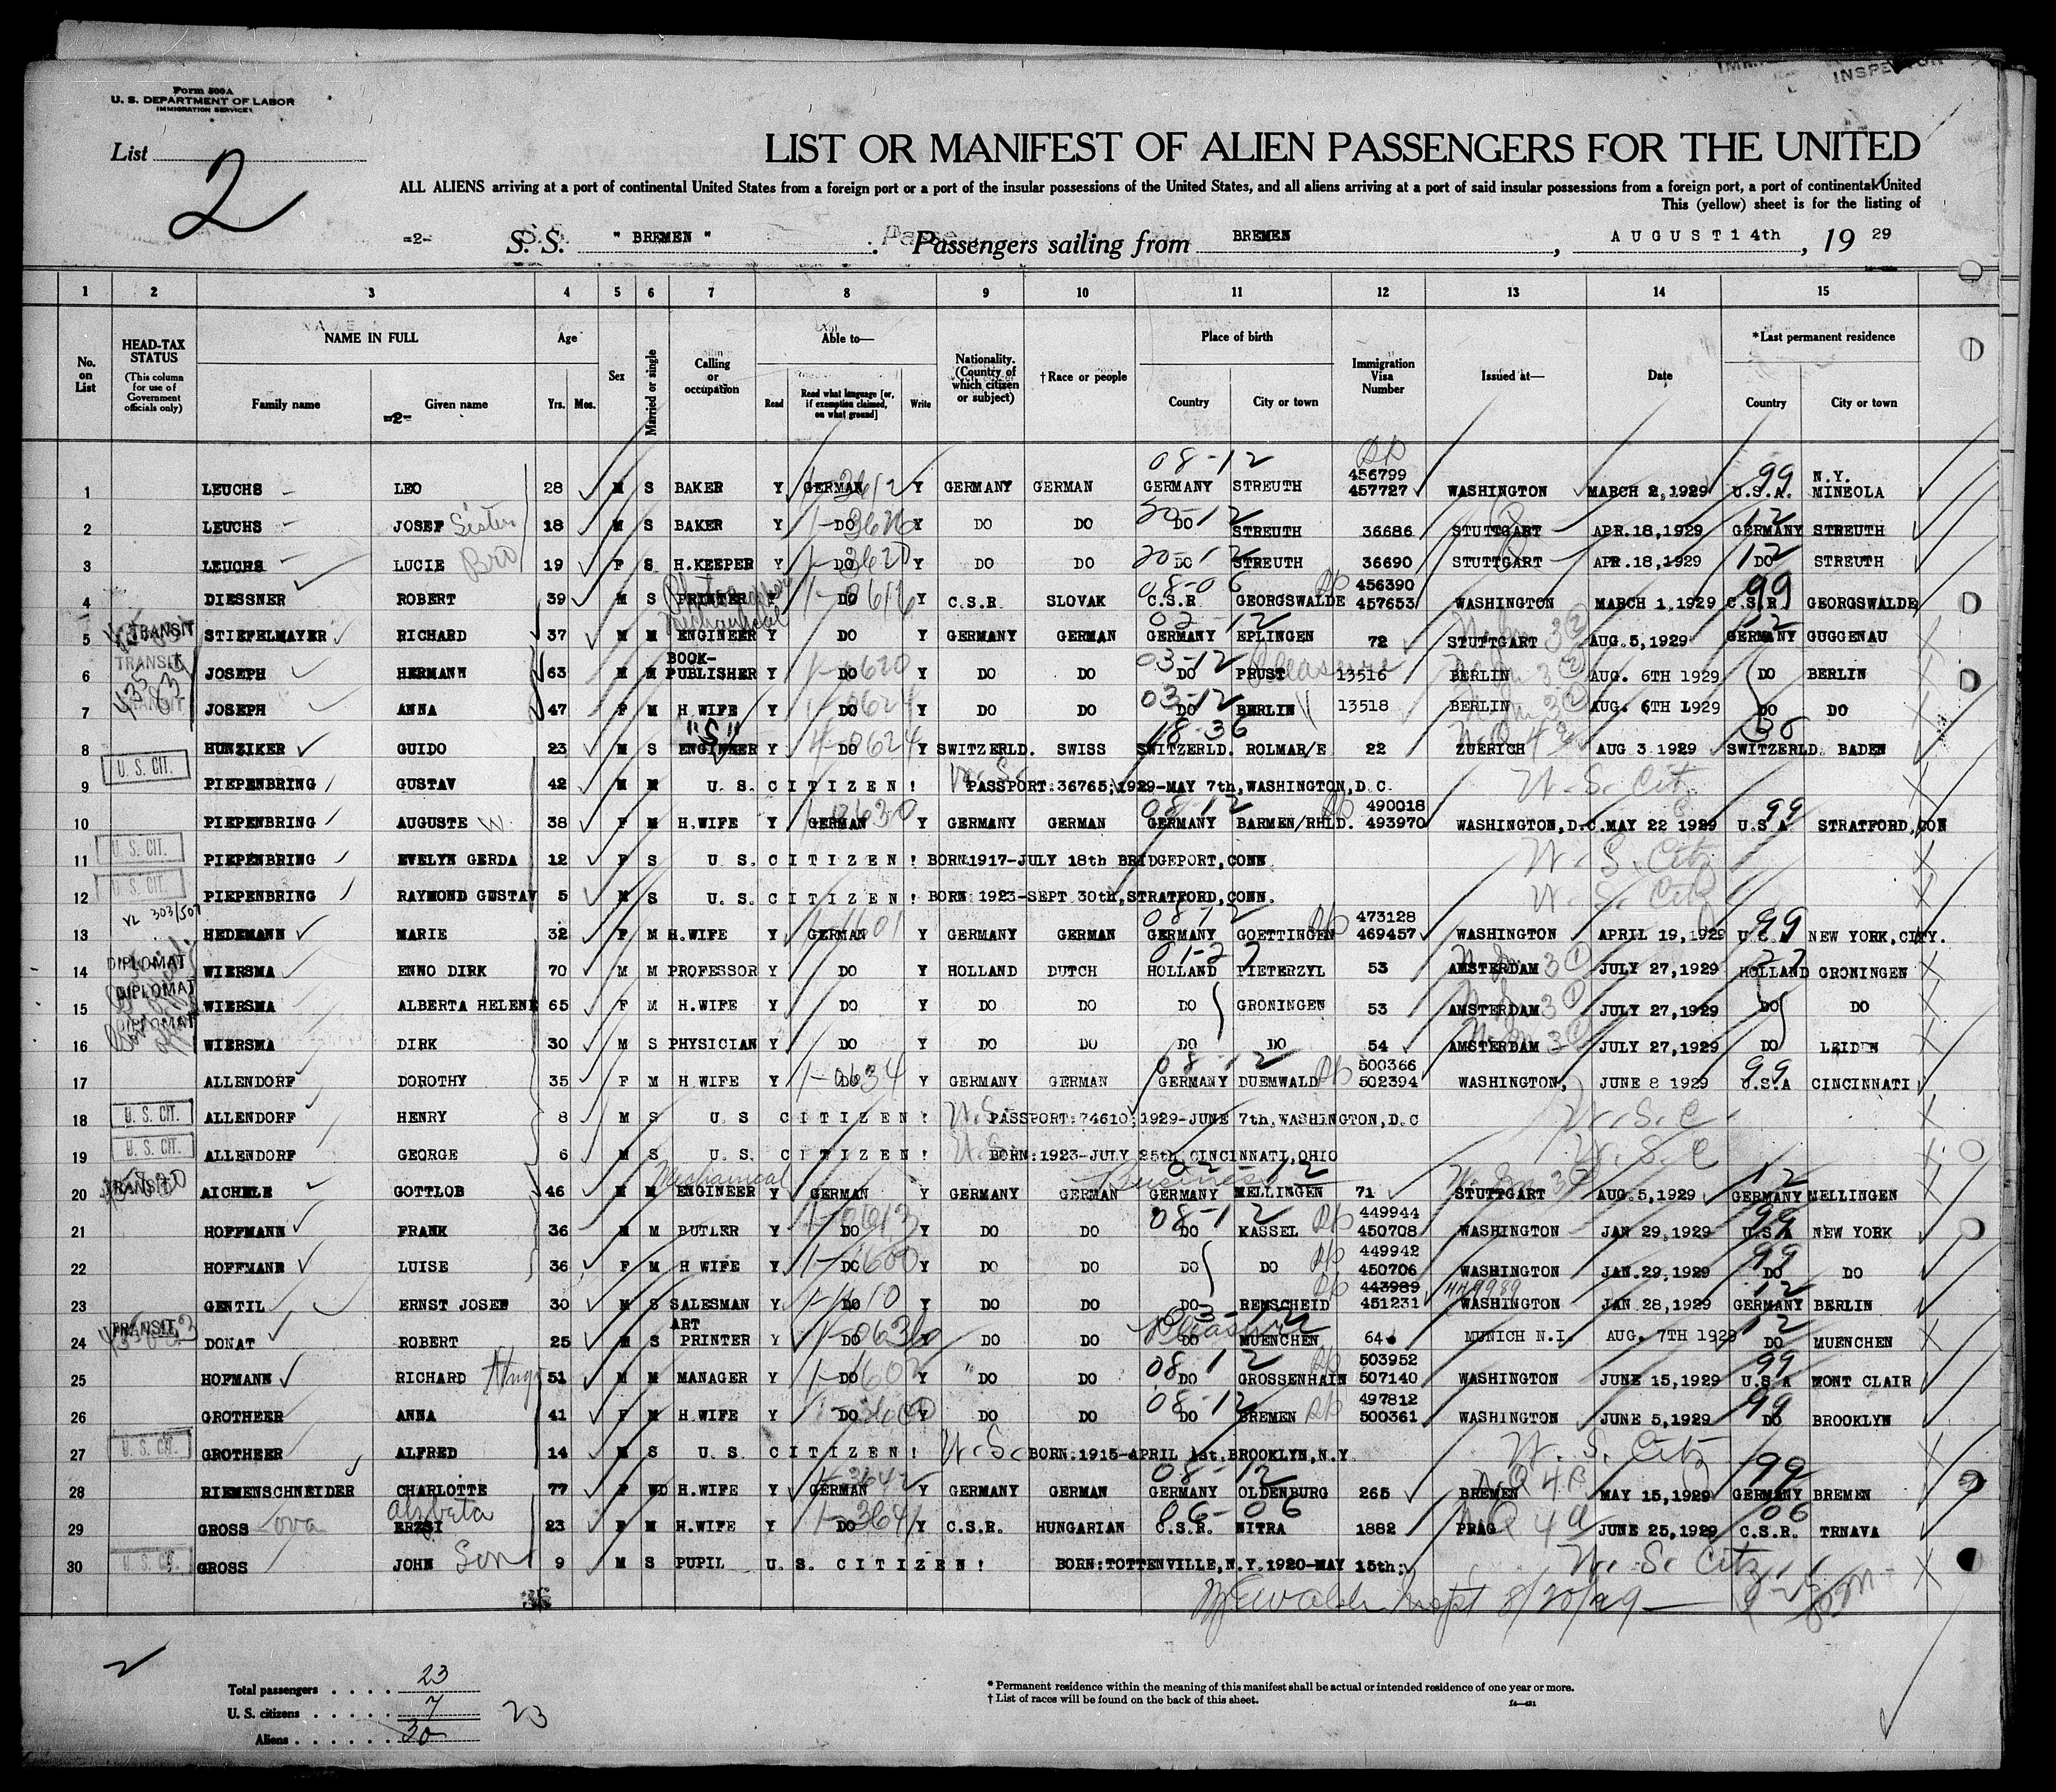 Form 500A
U. S. DEPARTMENT OF LABOR
IMMIGRATION SERVICE
INSPECTOR
List
2
LIST OR MANIFEST OF ALIEN PASSENGERS FOR THE UNITED
ALL ALIENS arriving at a port of continental United States from a foreign port or a port of the insular possessions of the United States, and all aliens arriving at a port of said insular possessions from a foreign port, a port of continental United
This (yellow) sheet is for the listing of
=2- S. S. " BREMEN " Passengers sailing from BREMEN, AUGUST 14th, 19 29
1 2 3 4 5 6 7 8 9 10 11 12 13 14 15
No. on List
HEAD-TAX STATUS (This column for use of Government officials only)
NAME IN FULL Family name Given name
=2-
Age Yrs. Mos.
Sex
Married or single
Calling or occupation
Able to— Read Read what language [or, if exemption claimed, on what ground] Write
Nationality. (Country of which citizen or subject)
†Race or people
Place of birth Country City or town
Immigration Visa Number
Issued at—
Date
*Last permanent residence Country City or town
1 LEUCHS LEO 28 M S BAKER Y GERMAN Y GERMANY GERMAN 08-12 GERMANY STREUTH 456799 457727 WASHINGTON MARCH 2,1929 99 U.S.A. N.Y. MINEOLA
2 LEUCHS JOSEF Sister 18 M S BAKER Y DO Y DO DO 20-12 DO STREUTH 36686 STUTTGART APR.18,1929 12 GERMANY STREUTH
3 LEUCHS LUCIE Bro 19 F S H.KEEPER Y DO Y DO DO 20-12 STREUTH 36690 STUTTGART APR.18,1929 12 DO STREUTH
4 DIESSNER ROBERT 39 M S PRINTER Y DO Y C.S.R. SLOVAK 08-06 C.S.R GEORGSWALDE 456390 457653 WASHINGTON MARCH 1,1929 99 C.S.R. GEORGSWALDE
5 TRANSIT STIEFELMAYER RICHARD 37 M M Mechanical ENGINEER Y DO Y GERMANY GERMAN 02-12 GERMANY EPLINGEN 72 STUTTGART AUG.5,1929 12 GERMANY GUGGENAU
6 TRANSIT JOSEPH HERMANN 63 M M BOOK-PUBLISHER Y DO Y DO DO 03-12 DO PRUST Pleasure 13516 BERLIN AUG. 6TH 1929 DO BERLIN
7 TRANSIT JOSEPH ANNA 47 F M H WIFE Y DO Y DO DO 03-12 DO BERLIN 13518 BERLIN AUG. 6TH 1929 DO DO
8 HUNZIKER GUIDO 23 M S "S" ENGINEER Y DO Y SWITZERLD. SWISS 18-36 SWITZERLD. ROLMAR/E 22 ZUERICH AUG 3 1929 36 SWITZERLD. BADEN
9 U. S. CIT. PIEPENBRING GUSTAV 42 M M U. S. CITIZEN! PASSPORT:36765;1929-MAY 7th,WASHINGTON,D.C. U. S. Citz
10 PIEPENBRING AUGUSTE W 38 F M H.WIFE Y GERMAN Y GERMANY GERMAN 08-12 GERMANY BARMEN/RHLD. 490018 493970 WASHINGTON,D.C. MAY 22 1929 99 U.S.A STRATFORD,CON
11 U. S. CIT. PIEPENBRING EVELYN GERDA 12 F S U. S. CITIZEN! BORN:1917-JULY 18th BRIDGEPORT,CONN. U. S. Citz
12 U. S. CIT. PIEPENBRING RAYMOND GUSTAV 5 M S U. S. CITIZEN! BORN 1923-SEPT 30th,STRATFORD,CONN. U. S. Citz
13 VL 303/507 HEDEMANN MARIE 32 F M H.WIFE Y GERMAN Y GERMANY GERMAN 08-12 GERMANY GOETTINGEN 473128 469457 WASHINGTON APRIL 19,1929 99 U.S.A NEW YORK,CITY.
14 DIPLOMAT WIERSMA ENNO DIRK 70 M M PROFESSOR Y DO Y HOLLAND DUTCH 01-27 HOLLAND PIETERZYL 53 AMSTERDAM JULY 27,1929 27 HOLLAND GRONINGEN
15 DIPLOMAT WIERSMA ALBERTA HELENE 65 F M H.WIFE Y DO Y DO DO DO GRONINGEN 53 AMSTERDAM JULY 27,1929 DO DO
16 DIPLOMAT WIERSMA DIRK 30 M S PHYSICIAN Y DO Y DO DO DO DO 54 AMSTERDAM JULY 27,1929 DO LEIDEN
17 ALLENDORF DOROTHY 35 F M H WIFE Y DO Y GERMANY GERMAN 08-12 GERMANY DUEMWALD 500366 502394 WASHINGTON, JUNE 8 1929 99 U.S.A CINCINNATI
18 U. S. CIT. ALLENDORF HENRY 8 M S U S CITIZEN! PASSPORT:74610;1929-JUNE 7th,WASHINGTON,D.C U. S. C
19 U. S. CIT. ALLENDORF GEORGE 6 M S U. S. CITIZEN! BORN:1923-JULY 25th,CINCINNATI,OHIO U. S. C
20 TRANSIT AICHELE GOTTLOB 46 M M Mechanical ENGINEER Y GERMAN Y GERMANY GERMAN Business 02-12 GERMANY MELLINGEN 71 STUTTGART AUG.5,1929 12 GERMANY MELLINGEN
21 HOFFMANN FRANK 36 M M BUTLER Y DO Y DO DO 08-12 DO KASSEL 449944 450708 WASHINGTON JAN 29,1929 99 U.S.A NEW YORK
22 HOFFMANN LUISE 36 F M H WIFE Y DO Y DO DO DO DO 449942 450706 WASHINGTON JAN.29,1929 99 DO DO
23 GENTIL ERNST JOSEF 30 M S SALESMAN Y DO Y DO DO DO REMSCHEID 443989 451231 449989 WASHINGTON JAN 28,1929 12 GERMANY BERLIN
24 TRANSIT DONAT ROBERT 25 M S ART PRINTER Y DO Y DO DO 03-12 Pleasure DO MUENCHEN 64 MUNICH N.I. AUG. 7TH 1929 12 DO MUENCHEN
25 HOFMANN RICHARD Hugo 51 M M MANAGER Y DO Y DO DO 08-12 DO GROSSENHAIN 503952 507140 WASHINGTON JUNE 15,1929 99 U.S.A MONT CLAIR
26 GROTHEER ANNA 41 F M H.WIFE Y DO Y DO DO 08-12 DO BREMEN 497812 500361 WASHINGTON JUNE 5,1929 99 DO BROOKLYN
27 U. S. CIT. GROTHEER ALFRED 14 M S U. S. CITIZEN! U. S. C BORN:1915-APRIL 1st.BROOKLYN,N.Y. U. S. Citz
28 RIEMENSCHNEIDER CHARLOTTE 77 F WD H.WIFE Y GERMAN Y GERMANY GERMAN 08-12 GERMANY OLDENBURG 265 BREMEN MAY 15,1929 99 GERMANY BREMEN
29 GROSS ova Alzbeta ERZSI 23 F M H.WIFE Y DO Y C.S.R. HUNGARIAN 06-06 C.S.R. NITRA 1882 PRAG JUNE 25,1929 06 C.S.R. TRNAVA
30 U. S. CIT. GROSS JOHN Son 9 M S PUPIL U. S. CITIZEN! BORN:TOTTENVILLE,N.Y.1920-MAY 15th: U. S. Citz
8/20/29
Total passengers 23
U. S. citizens 7 23
Aliens 30
* Permanent residence within the meaning of this manifest shall be actual or intended residence of one year or more.
† List of races will be found on the back of this sheet.